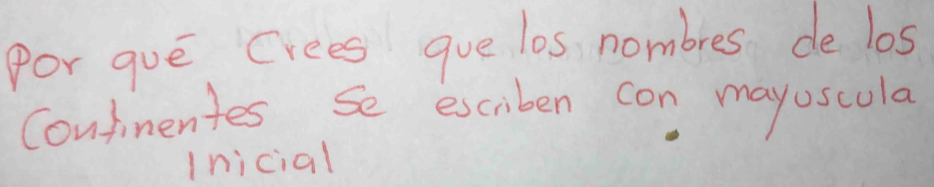 Por qué Crees que los nombres de los
Continentes se escriben con mayuscula
Inicial